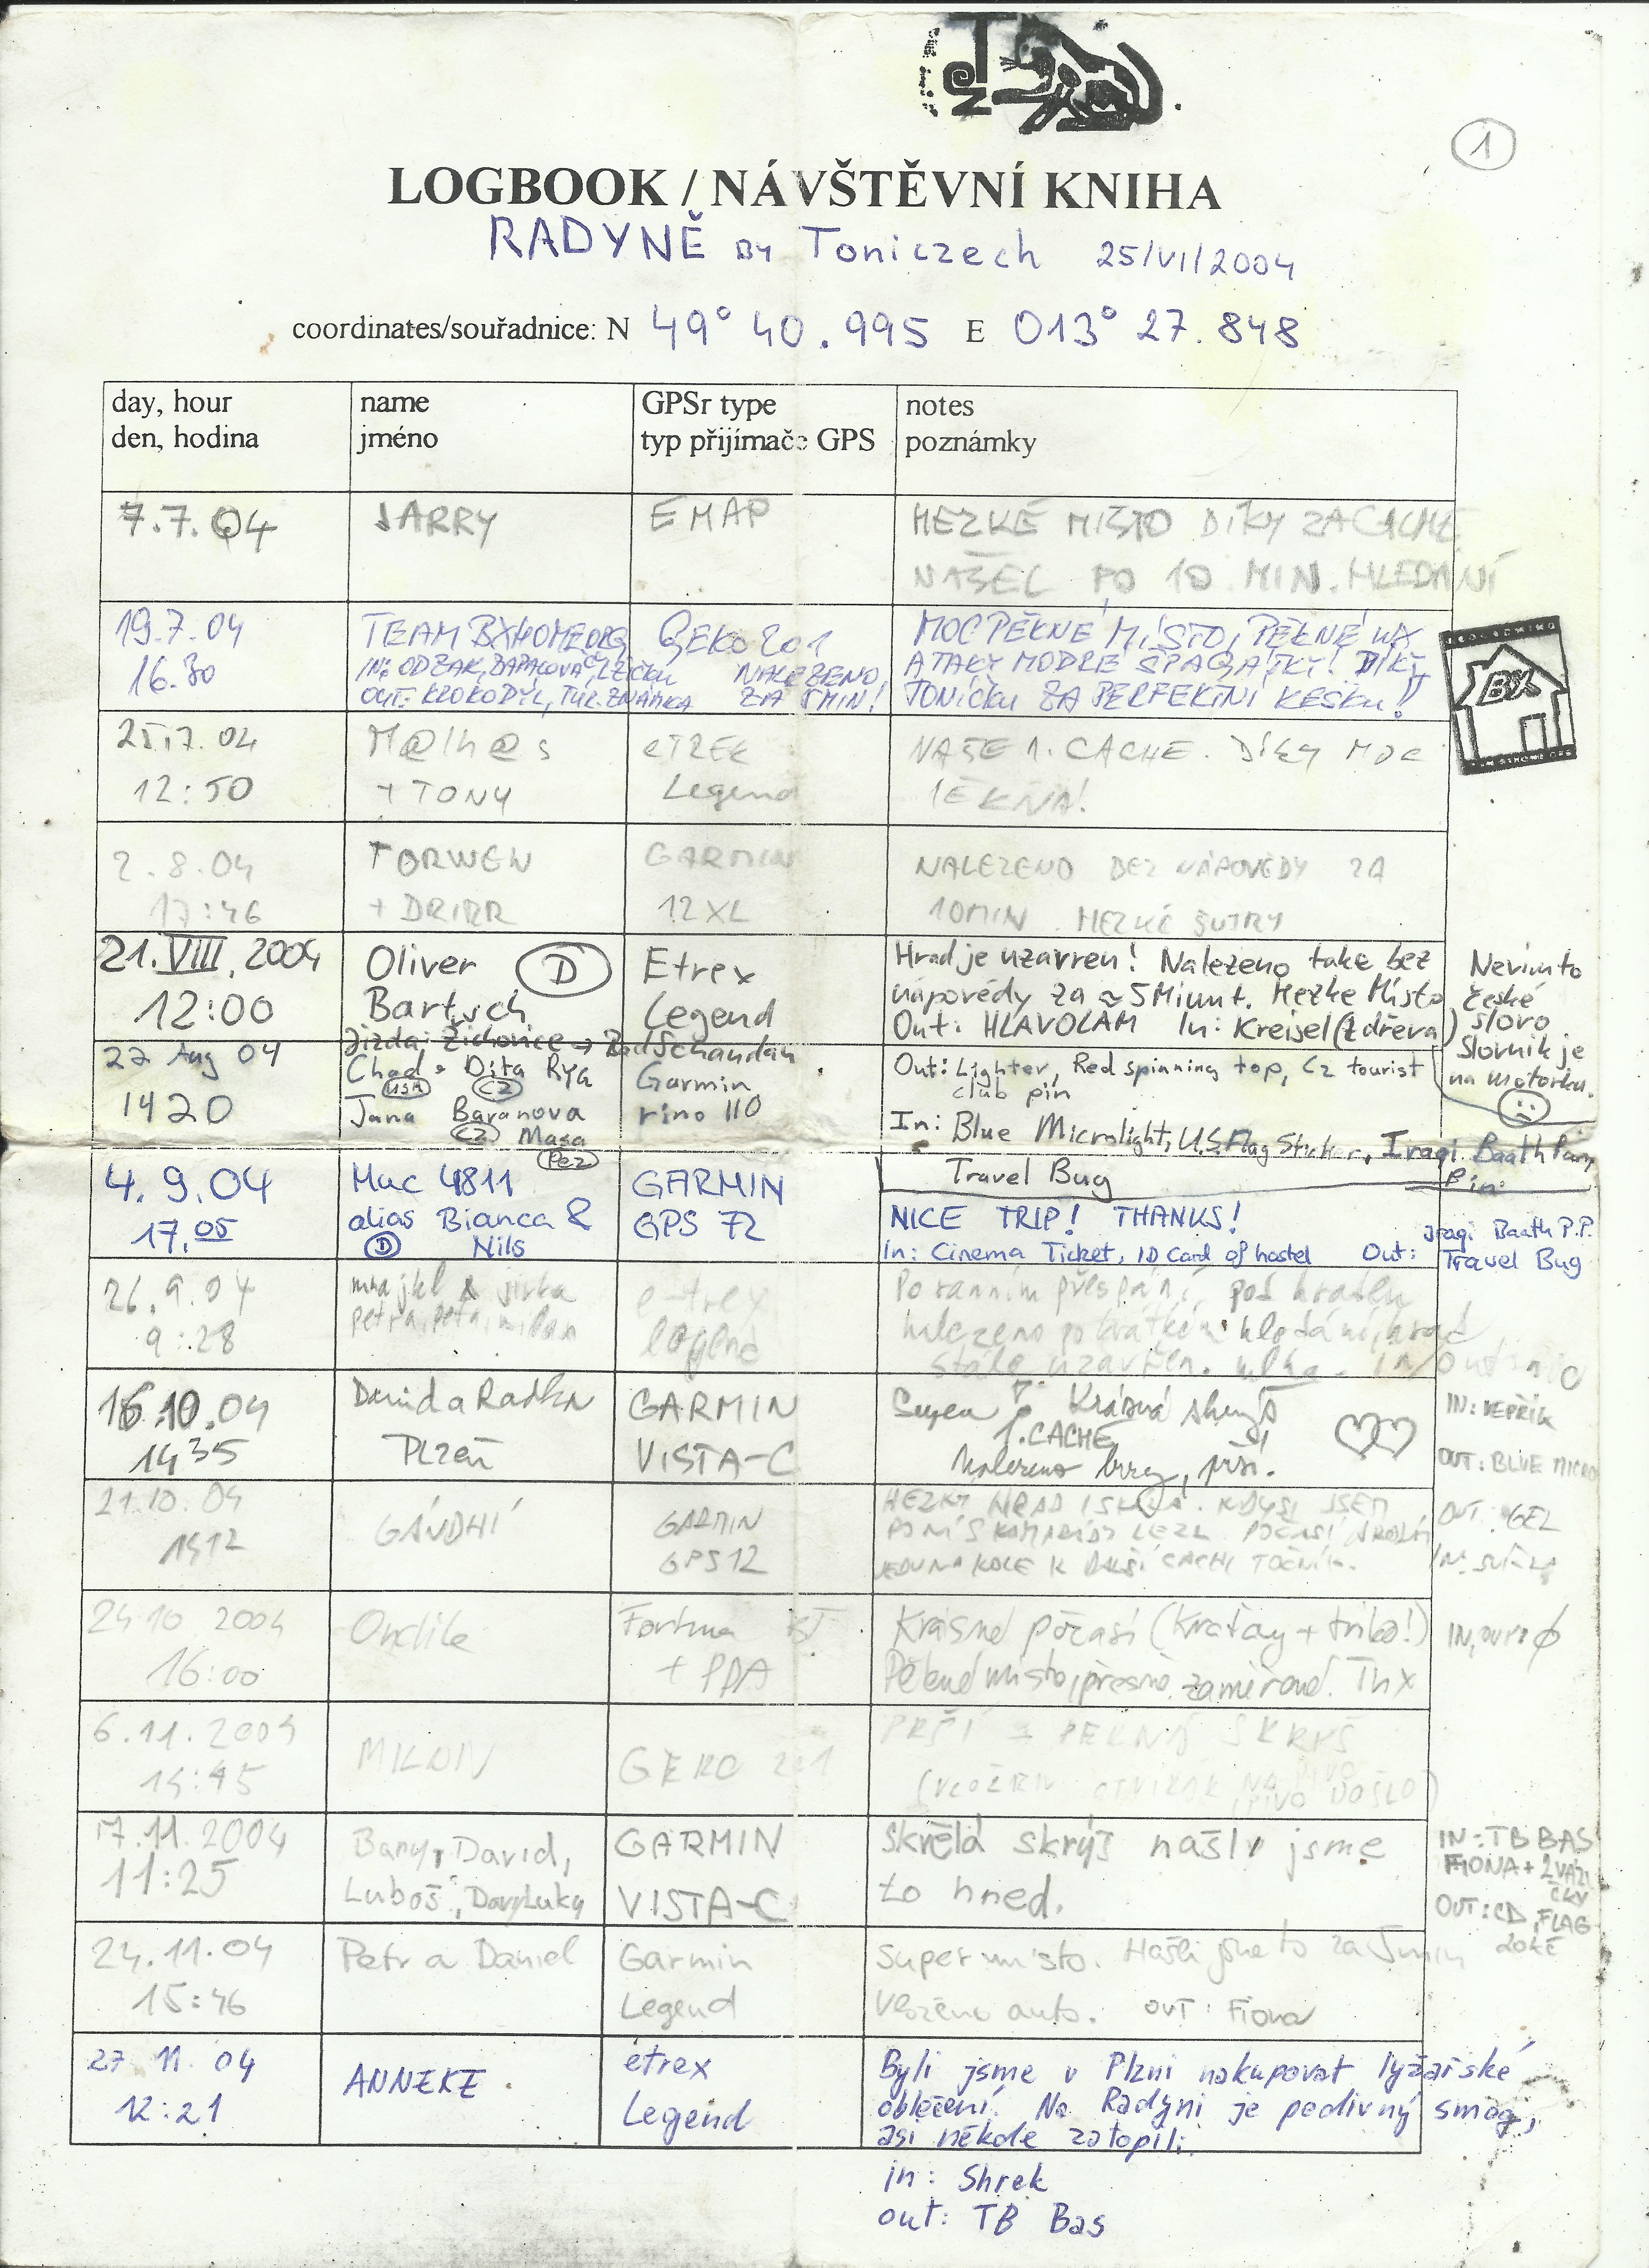 1
LOGBOOK / NÁVŠTĚVNÍ KNIHA
RADYNĚ BY Toniczech 25/VI/2004
coordinates/souřadnice: N 49° 40.995 E 013° 27.848
day, hour
den, hodina
name
jméno
GPSr type
typ přijímače GPS
notes
poznámky
7.7.04
JARRY
EMAP
HEZKÉ MÍSTO DÍKY ZA CACHE
NAŠEL PO 10 MIN. HLEDÁNÍ
19.7.04
16.30
TEAM BXHOMEDRG
OUT: KROKODÝL, TUR. ZNÁMKA
GEKO 201
NALEZENO
ZA 5MIN!
MOC PĚKNÉ MÍSTO, PĚKNÉ WX
A TAKY MODRÉ ŠPAGÁTKY! DÍKY
TONÍČKU ZA PERFEKTNÍ KEŠKU!!
BX
25.7.04
12:50
M@lh@s
+ TONY
eTREX
Legend
NAŠE 1. CACHE. DÍKY MOC
2.8.04
17:46
TORWEN
+ DRIRR
GARMIN
12XL
NALEZENO BEZ NÁPOVĚDY ZA
10MIN. HEZKÉ ŠUTRY
21.VIII.2004
12:00
Oliver D
Bartsch
Jizda: Žichovice → Bad Schandau
Etrex
Legend
Hrad je uzavren! Nalezeno take bez
nápovédy za ≈5 Miunt. Hezke Místo
Out: HLAVOLAM In: Kreisel (zdřeva)
Nevim to
české
slovo
Slovnik je
na motorku.
22 Aug 04
1420
Chad + Dita Rya
USA CZ
Jana Baranova
CZ Masa
Pez
Garmin
rino 110
Out: Lighter, Red spinning top, CZ tourist
club pin
In: Blue Microlight, U.S. Flag Sticker, Iraqi Baath Party
Pin
Travel Bug
4.9.04
17.05
Mac 4811
alias Bianca &
D Nils
GARMIN
GPS 72
NICE TRIP! THANKS!
In: Cinema Ticket, ID Card of hostel Out:
Iraqi Baath P.P.
Travel Bug
26.9.04
9:28
mrajkl & jirka
petra, peta, milan
e-trex
legend
Po ranním přespání pod hradem
nalezeno po krátkém hledání, hrad
stále uzavřen. in/out nic
16.10.04
1435
David a Radka
Plzeň
GARMIN
VISTA-C
Super Krásná skrýš
1. CACHE
Nalezeno brzy, prší.
IN: VEPŘÍK
OUT: BLUE MICRO
21.10.04
1512
GÁNDHÍ
GARMIN
GPS12
HEZKÝ HRAD I SKÁLA. KDYSI JSEM
PO NÍ S KAMARÁDY LEZL. POČASÍ
JEDU NA KOLE K DALŠÍ CACHI TOČNÍK.
OUT: GEL
24.10.2004
16:00
Ondík
Fortuna
+ PDA
Krásné počasí (kraťasy + triko!)
Pěkné místo, přesně zaměřené. Thx
IN, OUT: ∅
6.11.2004
14:45
MILON
GEKO 201
PRŠÍ = PĚKNÁ SKRÝŠ
(VLOŽEN OTVÍRÁK NA PIVO
PIVO DOŠLO)
17.11.2004
11:25
Bany, David,
Luboš,
GARMIN
VISTA-C
Skvělá skrýš našly jsme
to hned.
IN: TB BAS
FIONA + 2VAZI
ČKY
OUT: CD, FLAG
20Kč
24.11.04
15:46
Petr a Daniel
Garmin
Legend
Super misto. Našli jsme to za 5min
Vloženo auto. OUT: Fiona
27 11. 04
12:21
ANNEKE
étrex
Legend
Byli jsme v Plzni nakupovat lyžařské
oblečení. Na Radyni je podivný smog,
asi někde zatopili.
in: Shrek
out: TB Bas